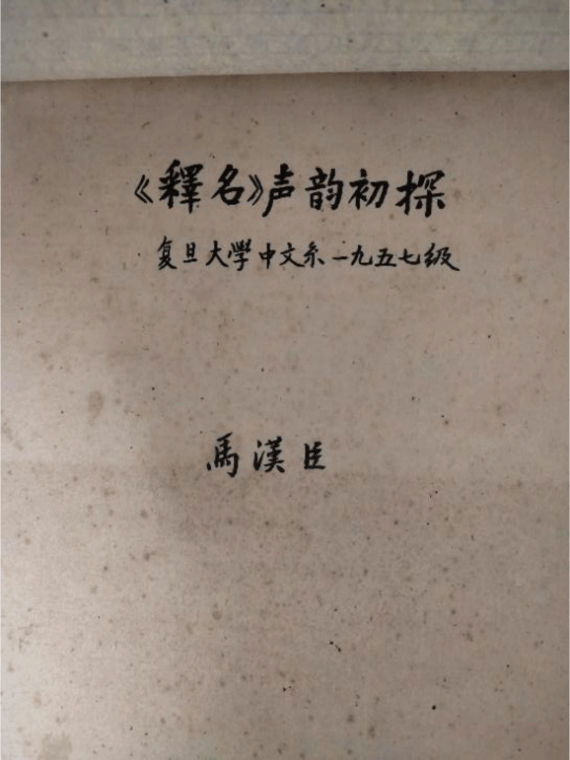 《釋名》声韵初探
复旦大學中文系一九五七级
馬漢臣